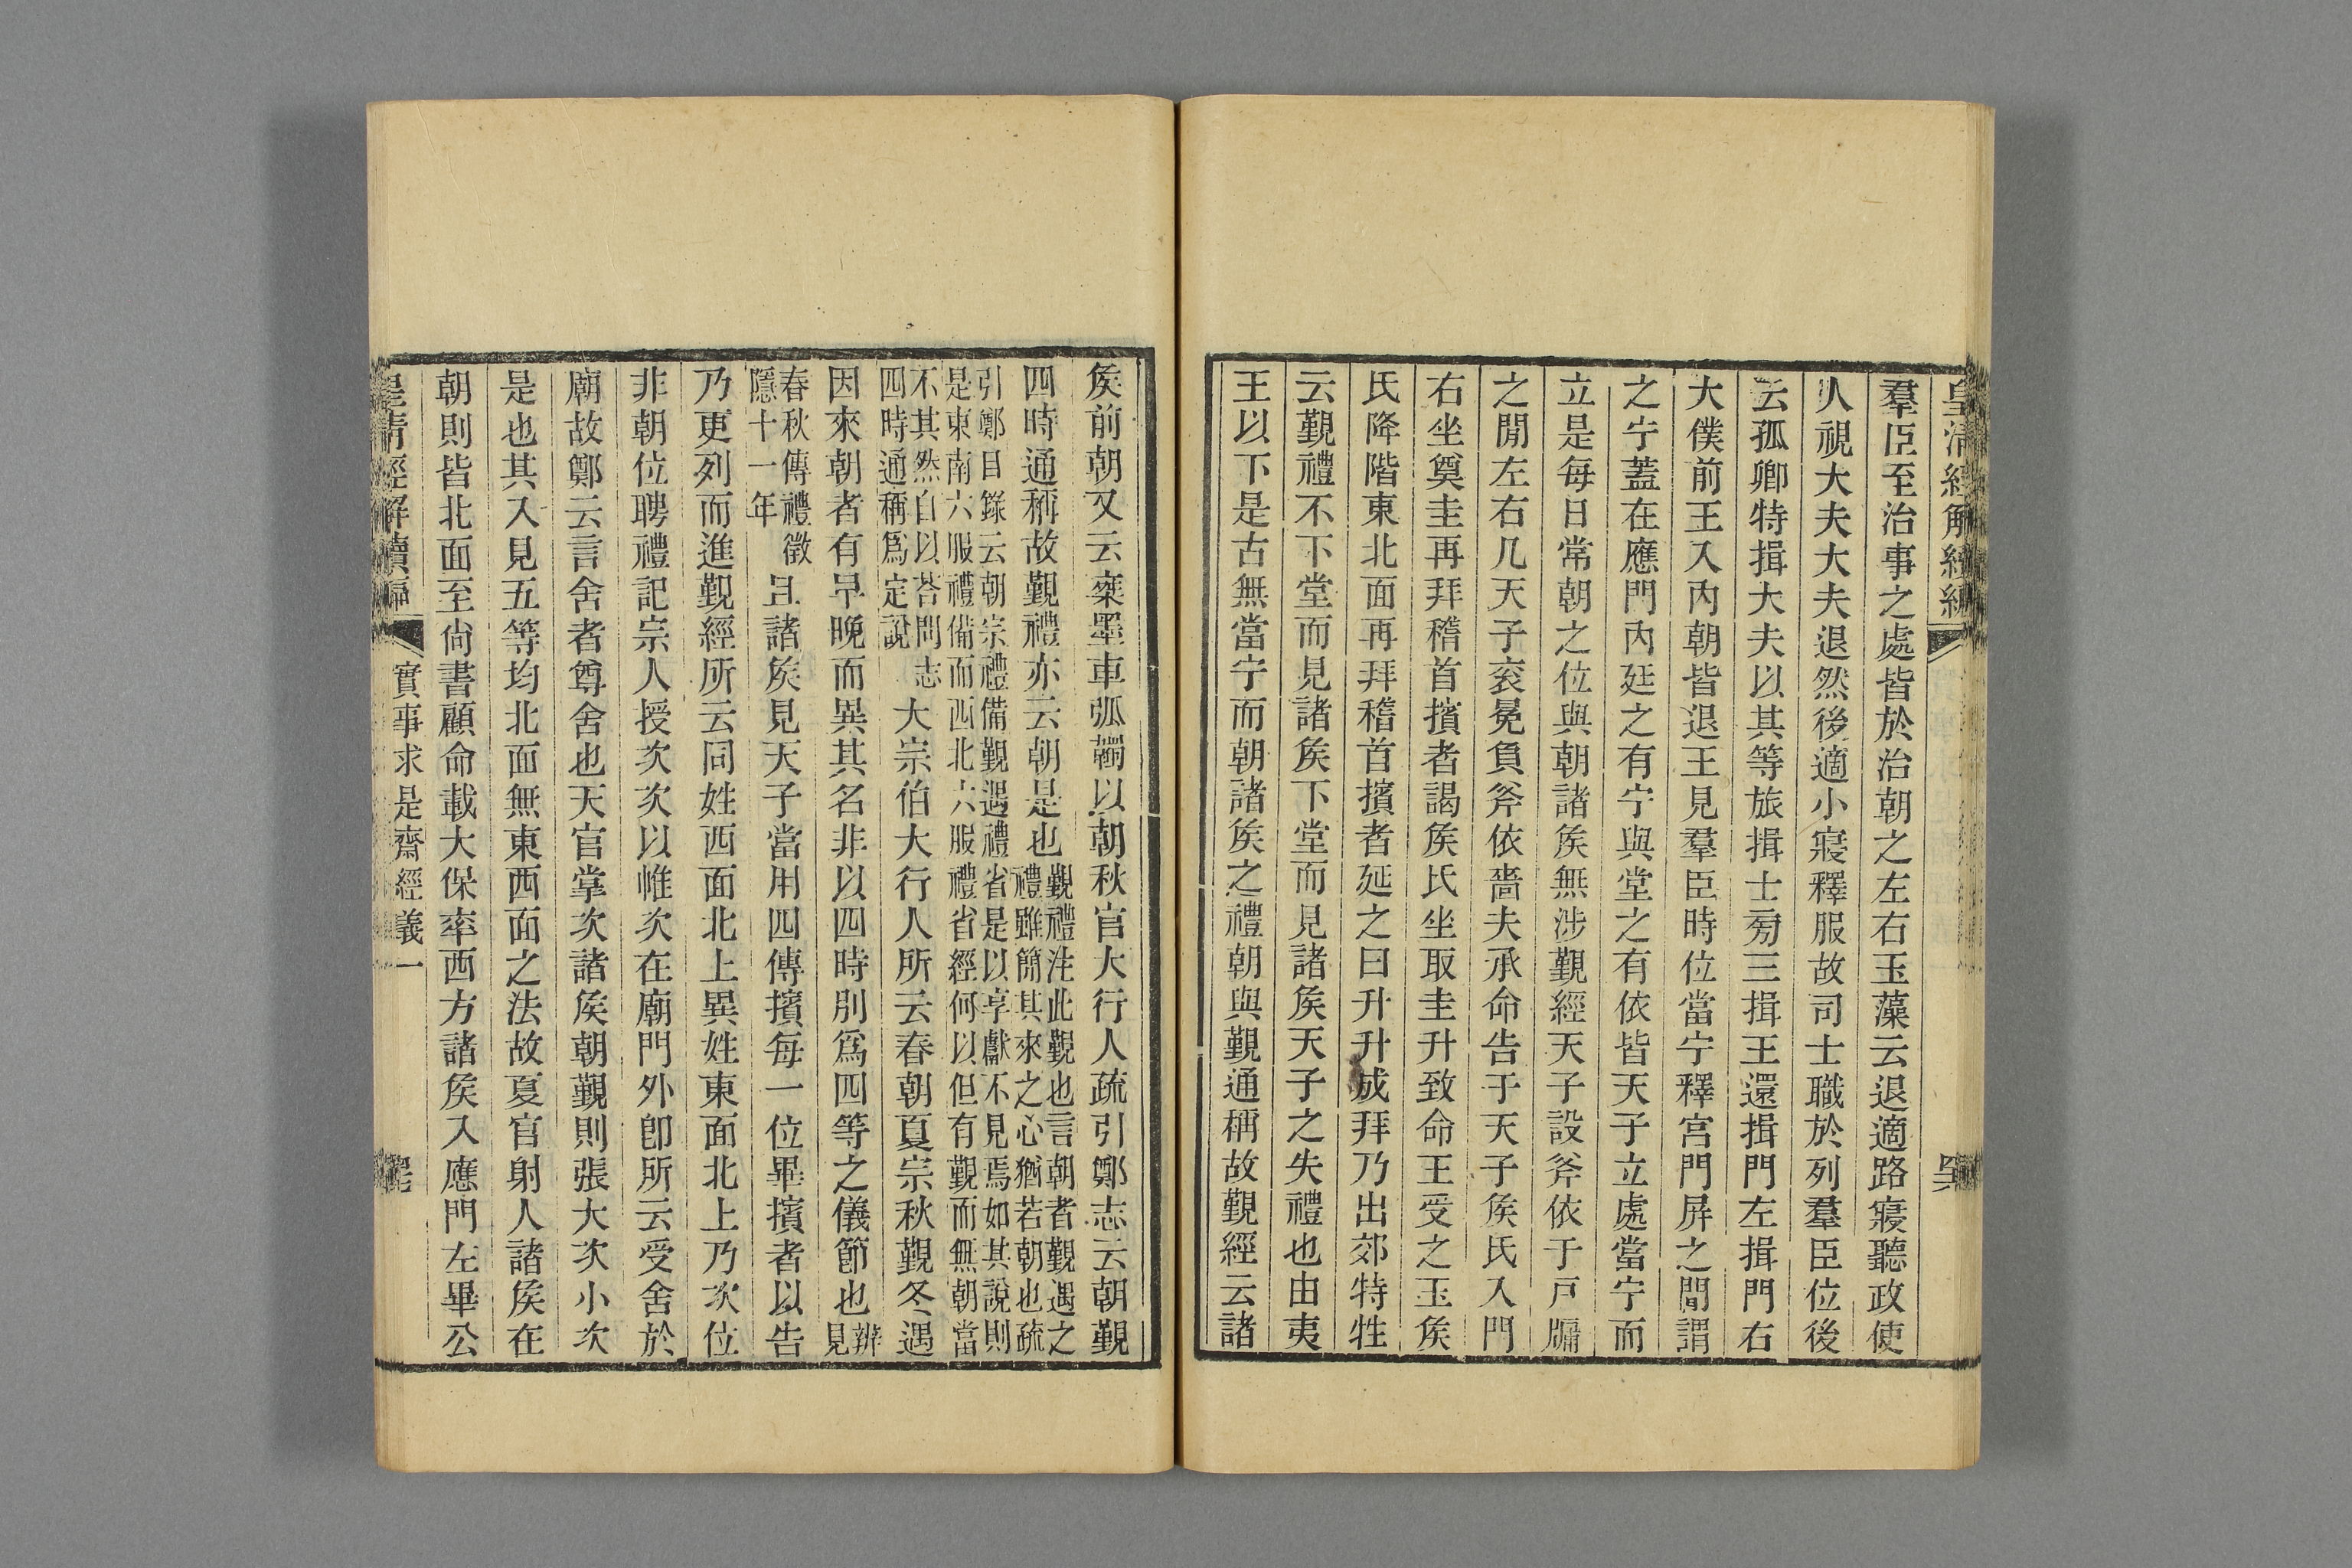 皇清經解續編
羣臣至治事之處皆於治朝之左右玉藻云退適路寢聽政使
人視大夫大夫退然後適小寢釋服故司士職於列羣臣位後
云孤卿特揖大夫以其等旅揖士旁三揖王還揖門左揖門右
大僕前王入內朝皆退王見羣臣時位當宁釋宮門屏之間謂
之宁蓋在應門內廷之有宁與堂之有依皆天子立處當宁而
立是每日常朝之位與朝諸矦無涉覲經天子設斧依于戸牖
之閒左右几天子衮冕負斧依嗇夫承命告于天子矦氏入門
右坐奠圭再拜稽首擯者謁矦氏坐取圭升致命王受之玉矦
氏降階東北面再拜稽首擯者延之曰升升成拜乃出郊特牲
云覲禮不下堂而見諸矦下堂而見諸矦天子之失禮也由夷
王以下是古無當宁而朝諸矦之禮朝與覲通稱故覲經云諸
矦前朝又云椉墨車弧韣以朝秋官大行人疏引鄭志云朝覲
四時通稱故覲禮亦云朝是也
覲禮注此覲也言朝者覲遇之
禮雖簡其來之心猶若朝也疏
引鄭目錄云朝宗禮備覲遇禮省是以享獻不見焉如其說則
是東南六服禮備而西北六服禮省經何以但有覲而無朝當
不其然自以荅問志
四時通稱爲定說
大宗伯大行人所云春朝夏宗秋覲冬遇
因來朝者有早晚而異其名非以四時別爲四等之儀節也
辨
見
春秋傳禮徵
隱十一年
且諸矦見天子當用四傳擯每一位畢擯者以告
乃更列而進覲經所云同姓西面北上異姓東面北上乃次位
非朝位聘禮記宗人授次次以帷次在廟門外卽所云受舍於
廟故鄭云言舍者尊舍也天官掌次諸矦朝覲則張大次小次
是也其入見五等均北面無東西面之法故夏官射人諸矦在
朝則皆北面至尙書顧命載大保率西方諸矦入應門左畢公
皇清經解續編
實事求是齋經義一